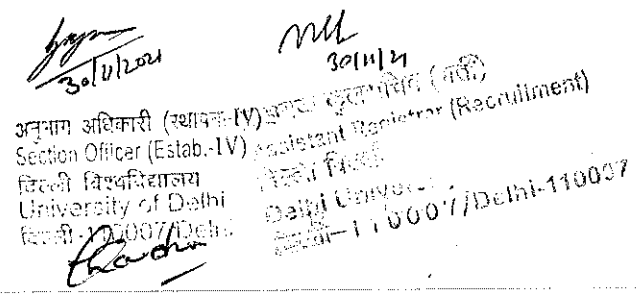 30/11/2021
30/11/21
अनुभाग अधिकारी (स्थापना-IV)
Section Officer (Estab.-IV)
दिल्ली विश्वविद्यालय
University of Delhi
दिल्ली-110007/Delhi
(भर्ती)
Assistant Registrar (Recruitment)
Delhi University
दिल्ली-110007/Delhi-110007